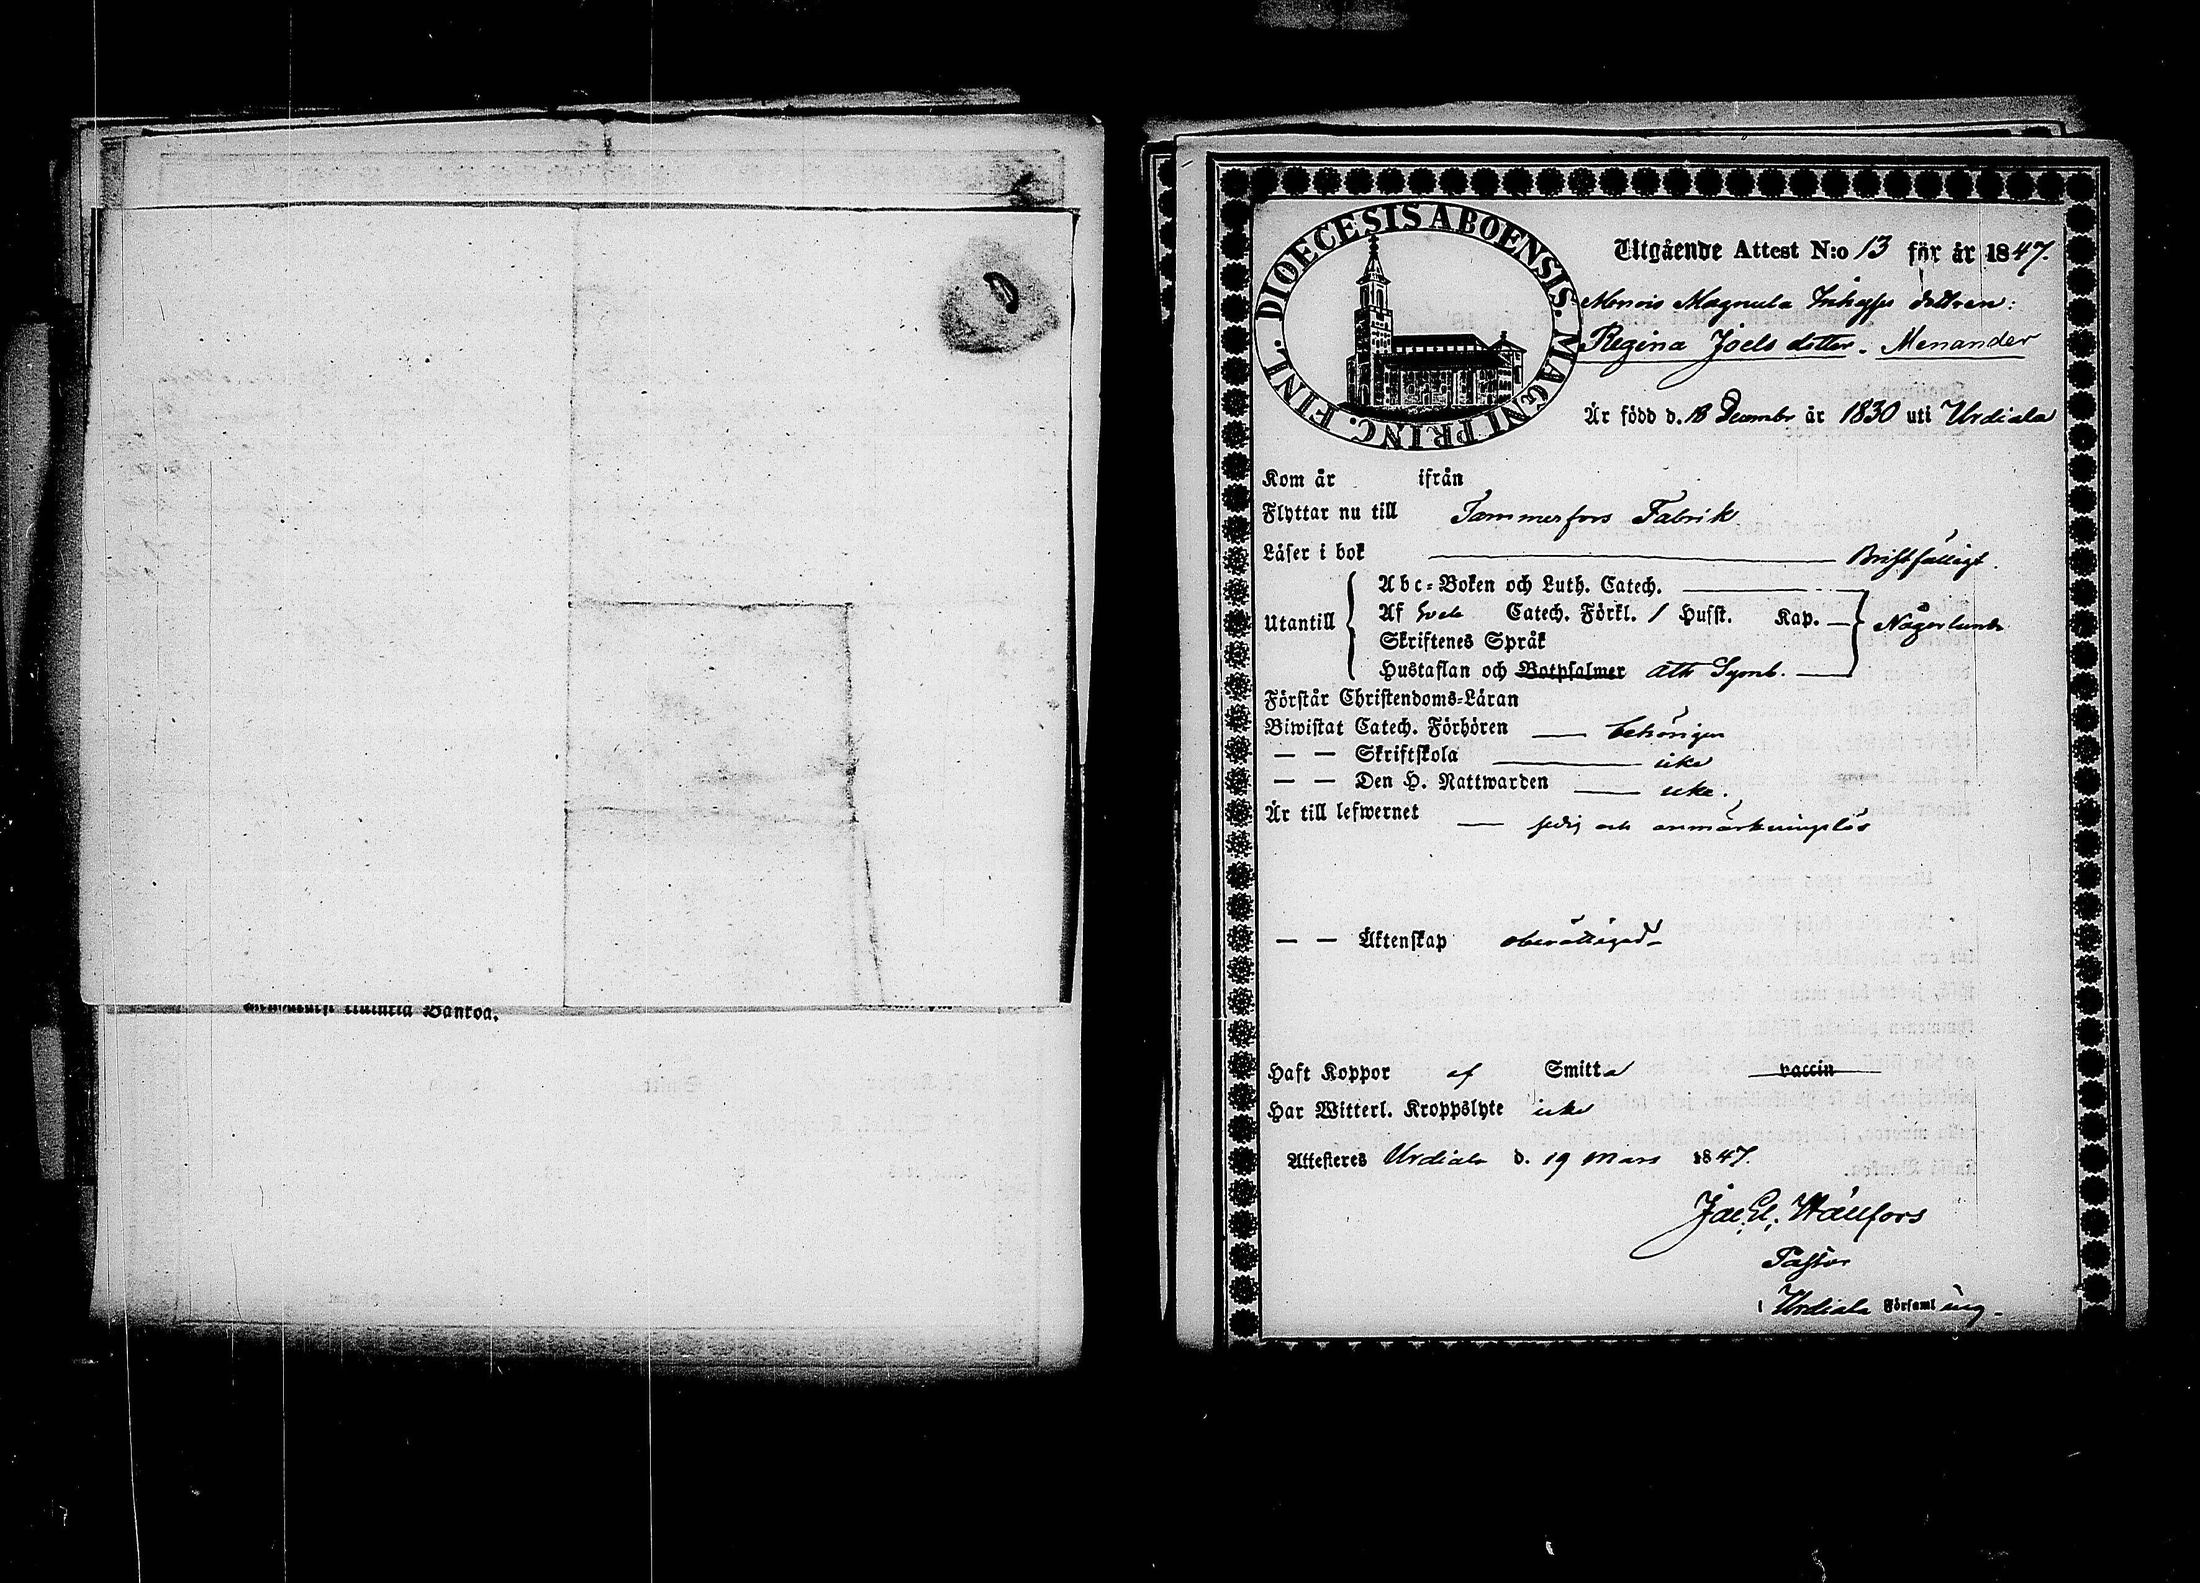 Bankoa.
DIOECESIS ABOENSIS. MAGNI PRINC. FINL.
Utgående Attest N:o 13 för år 1847.
Menois Magnula Inhyses dottren:
Regina Joels dotter. Menander
Är född d. 18 Decembr år 1830 uti Urdiala
Kom år ifrån
Flyttar nu till Tammerfors Fabrik
Läser i bok Bristfälligt.
Abc-Boken och Luth. Catech.
Utantill Af Sveb. Catech. Förkl. / Husst. Kap. — Någorlunda
Skriftenes Språk
Hustaflan och Botpsalmer Ath Symb.
Förstår Christendoms-Läran
Biwistat Catech. Förhören — behörigen
— — Skriftskola icke
— — Den H. Nattwarden — icke.
Är till lefwernet — sedig och anmärkningslös
— — Äktenskap oberättigad
Haft Koppor af Smitta vaccin
Har Witterl. Kroppslyte icke
Attesteras Urdiala d. 19 Mars 1847.
Wallfors
Pastor
i Urdiala Församling